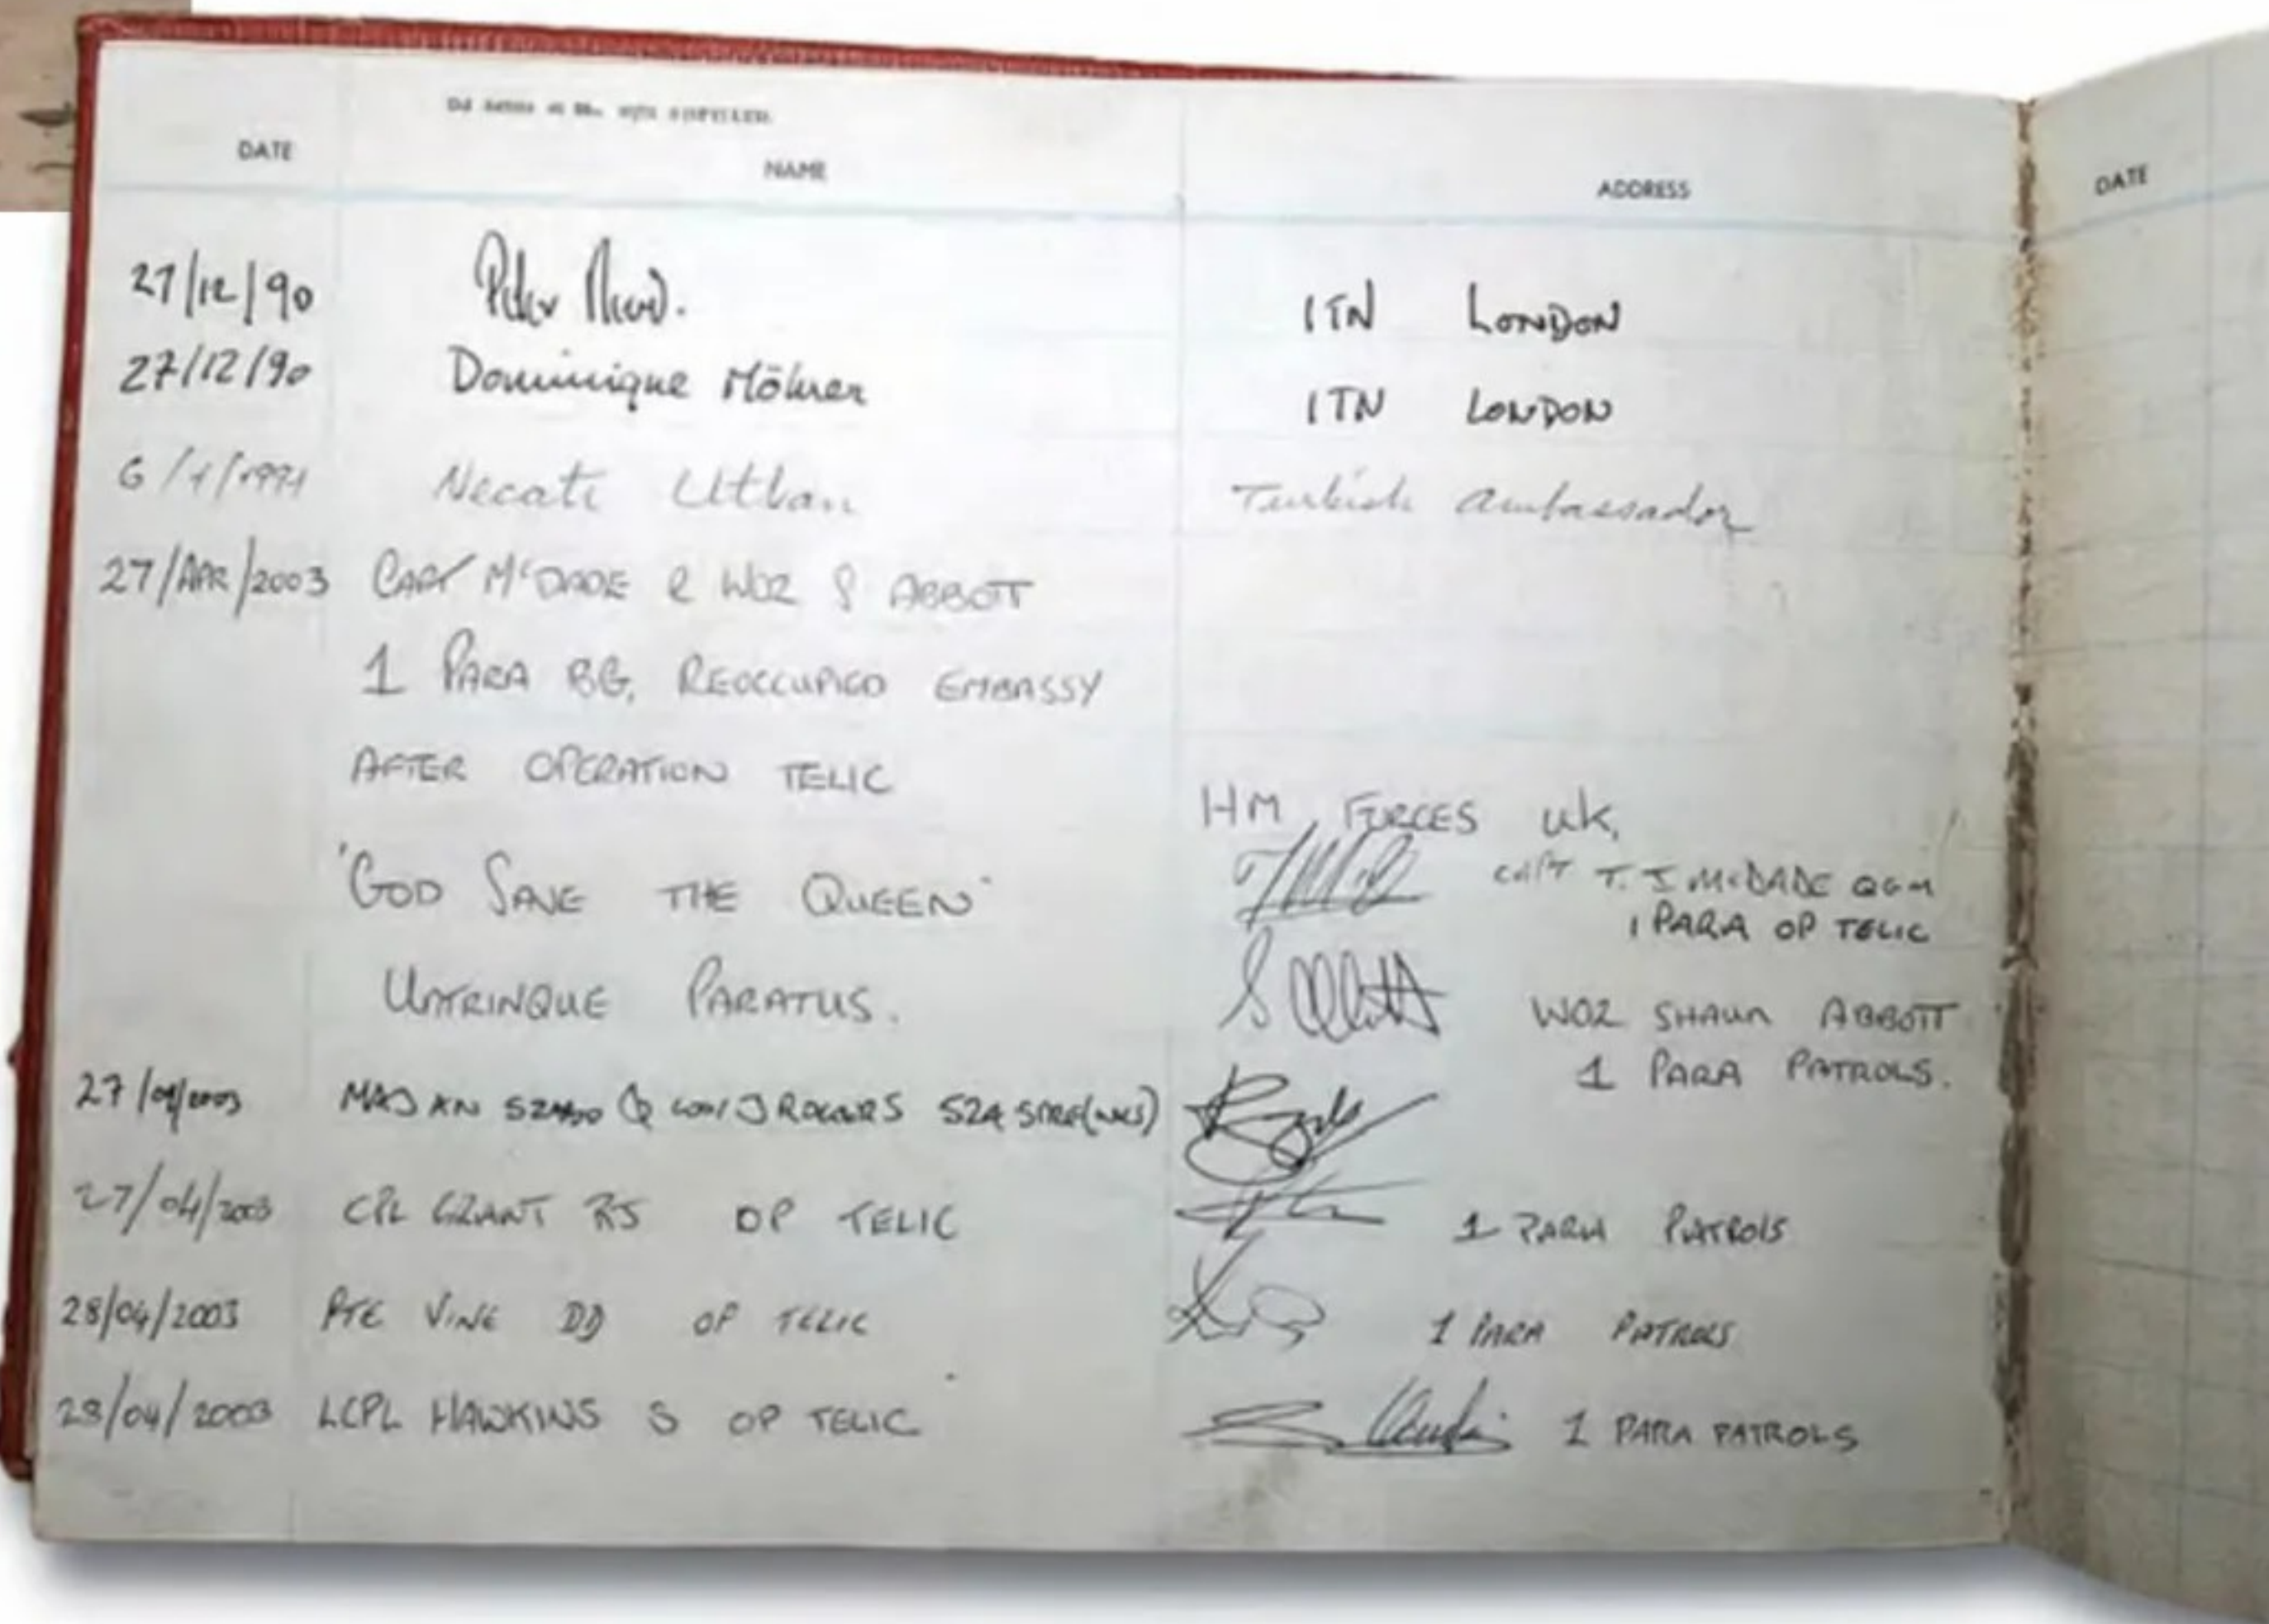 DATE NAME ADDRESS DATE
27/12/90 Peter ITN LONDON
27/12/90 Dominique Möhrer ITN LONDON
6/1/1991 Necati Utkan Turkish Ambassador
27/APR/2003 CAPT McDADE & WO2 S ABBOTT
1 PARA BG, REOCCUPIED EMBASSY
AFTER OPERATION TELIC
HM FORCES UK,
'GOD SAVE THE QUEEN' CAPT T. J McDADE QGM
1 PARA OP TELIC
UTRINQUE PARATUS. S Abbott WO2 SHAUN ABBOTT
1 PARA PATROLS.
27/04/2003 MAJ AN SZABO & WO1 J ROGERS 524 STRE(WKS)
27/04/2003 CPL GRANT RJ OP TELIC 1 PARA PATROLS
28/04/2003 PTE VINE DD OP TELIC 1 PARA PATROLS
28/04/2003 LCPL HAWKINS S OP TELIC 1 PARA PATROLS